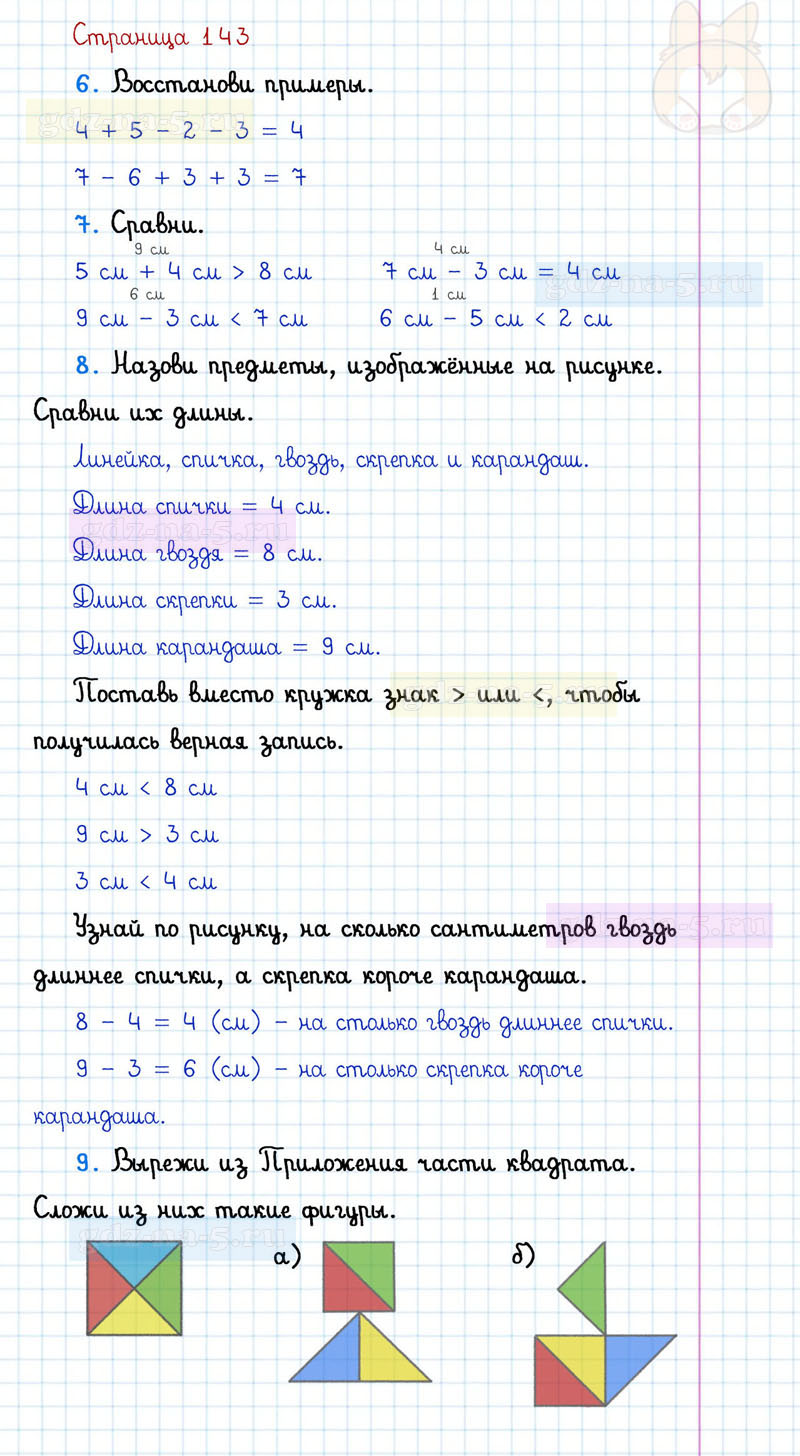 Страница 143
6. Восстанови примеры.
gdz-na-5.ru
4 + 5 - 2 - 3 = 4
7 - 6 + 3 + 3 = 7
7. Сравни.
9 см 4 см
5 см + 4 см > 8 см 7 см - 3 см = 4 см
gdz-na-5.ru
6 см 1 см
9 см - 3 см < 7 см 6 см - 5 см < 2 см
8. Назови предметы, изображённые на рисунке.
Сравни их длины.
Линейка, спичка, гвоздь, скрепка и карандаш.
Длина спички = 4 см.
gdz-na-5.ru
Длина гвоздя = 8 см.
Длина скрепки = 3 см.
Длина карандаша = 9 см.
Поставь вместо кружка знак > или <, чтобы
gdz-na-5.ru
получилась верная запись.
4 см < 8 см
9 см > 3 см
3 см < 4 см
Узнай по рисунку, на сколько сантиметров гвоздь
gdz-na-5.ru
длиннее спички, а скрепка короче карандаша.
8 - 4 = 4 (см) - на столько гвоздь длиннее спички.
9 - 3 = 6 (см) - на столько скрепка короче
карандаша.
9. Вырежи из Приложения части квадрата.
Сложи из них такие фигуры.
gdz-na-5.ru
а) б)